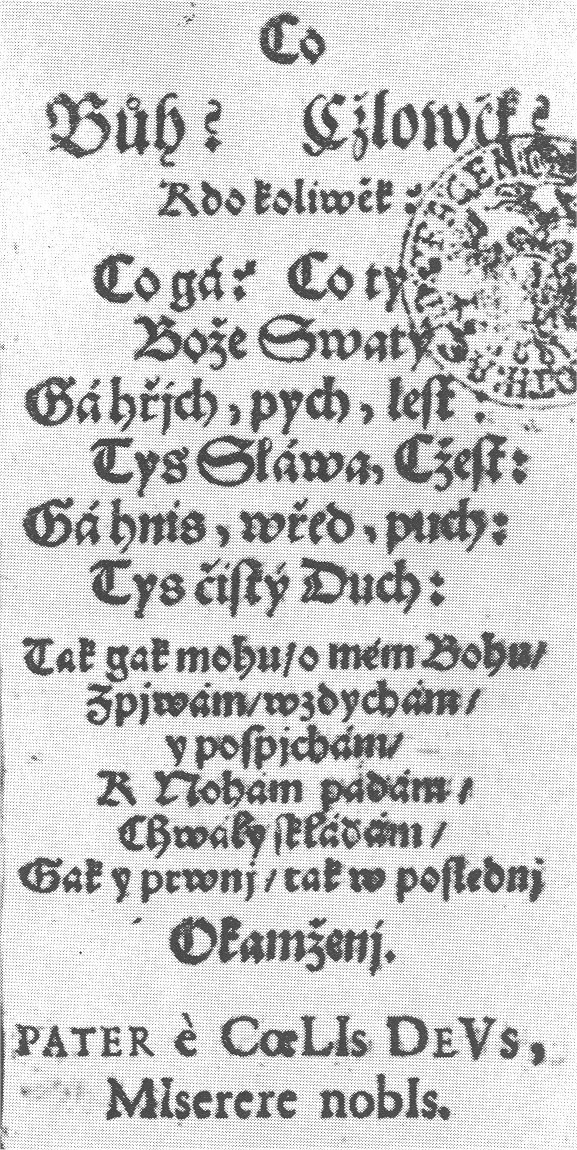 Co
Bůh? Cžlowěk?
Kdo koliwěk:
Co gá? Co ty?
Bože Swatý?
Gá hřjch, pych, lest:
Tys Sláwa, Cžest:
Gá hnis, wřed, puch:
Tys čistý Duch:
Tak gak mohu/o mém Bohu/
Zpjwám/wzdychám/
y pospjchám/
K Nohám padám/
Chwály skládám/
Gak y prwnj/tak w poslednj
Okamženj.
PATER è CœLIs DeVs,
MIserere nobIs.